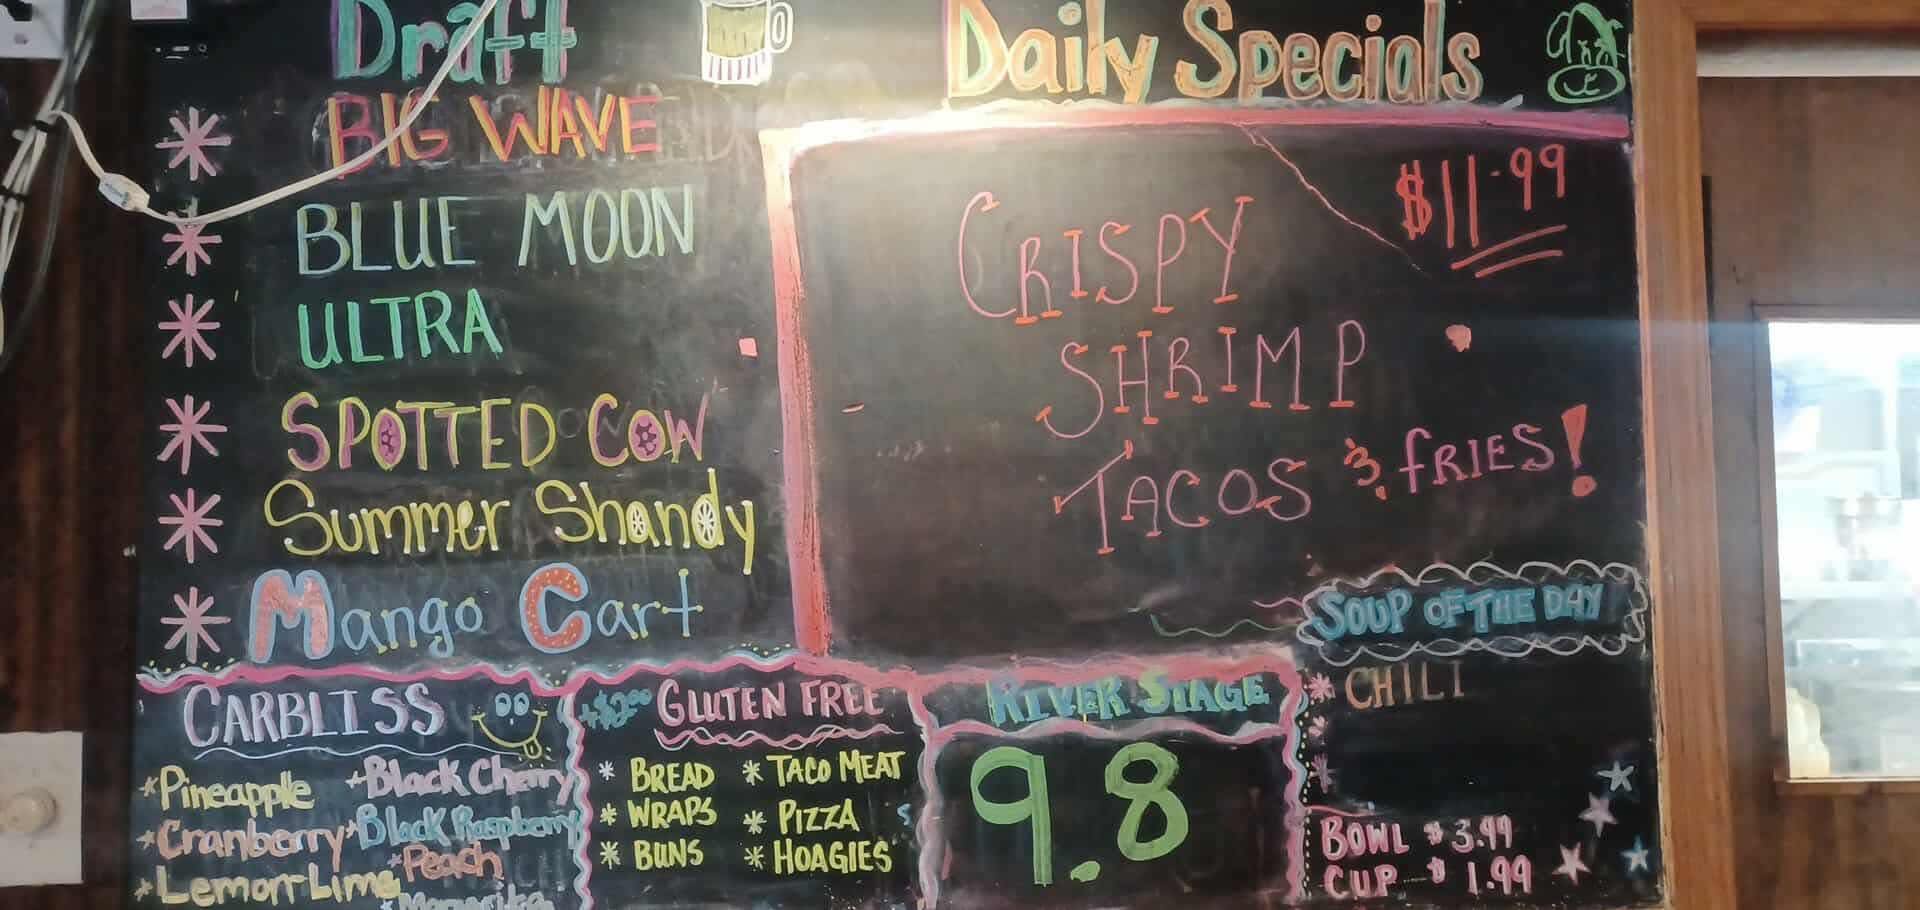 Draft
BIG WAVE
BLUE MOON
ULTRA
SPOTTED COW
Summer Shandy
Mango Cart
Daily Specials
$11.99
CRISPY
SHRIMP
TACOS & fRIES!
CARBLISS
*Pineapple
*Black Cherry
*Cranberry
*Black Raspberry
*Peach
*Lemon-Lime
+$2.00
GLUTEN FREE
* BREAD
* TACO MEAT
* WRAPS
* PIZZA
* BUNS
* HOAGIES
RIVER STAGE
9.8
SOUP OF THE DAY
* CHILI
BOWL $3.99
CUP $1.99